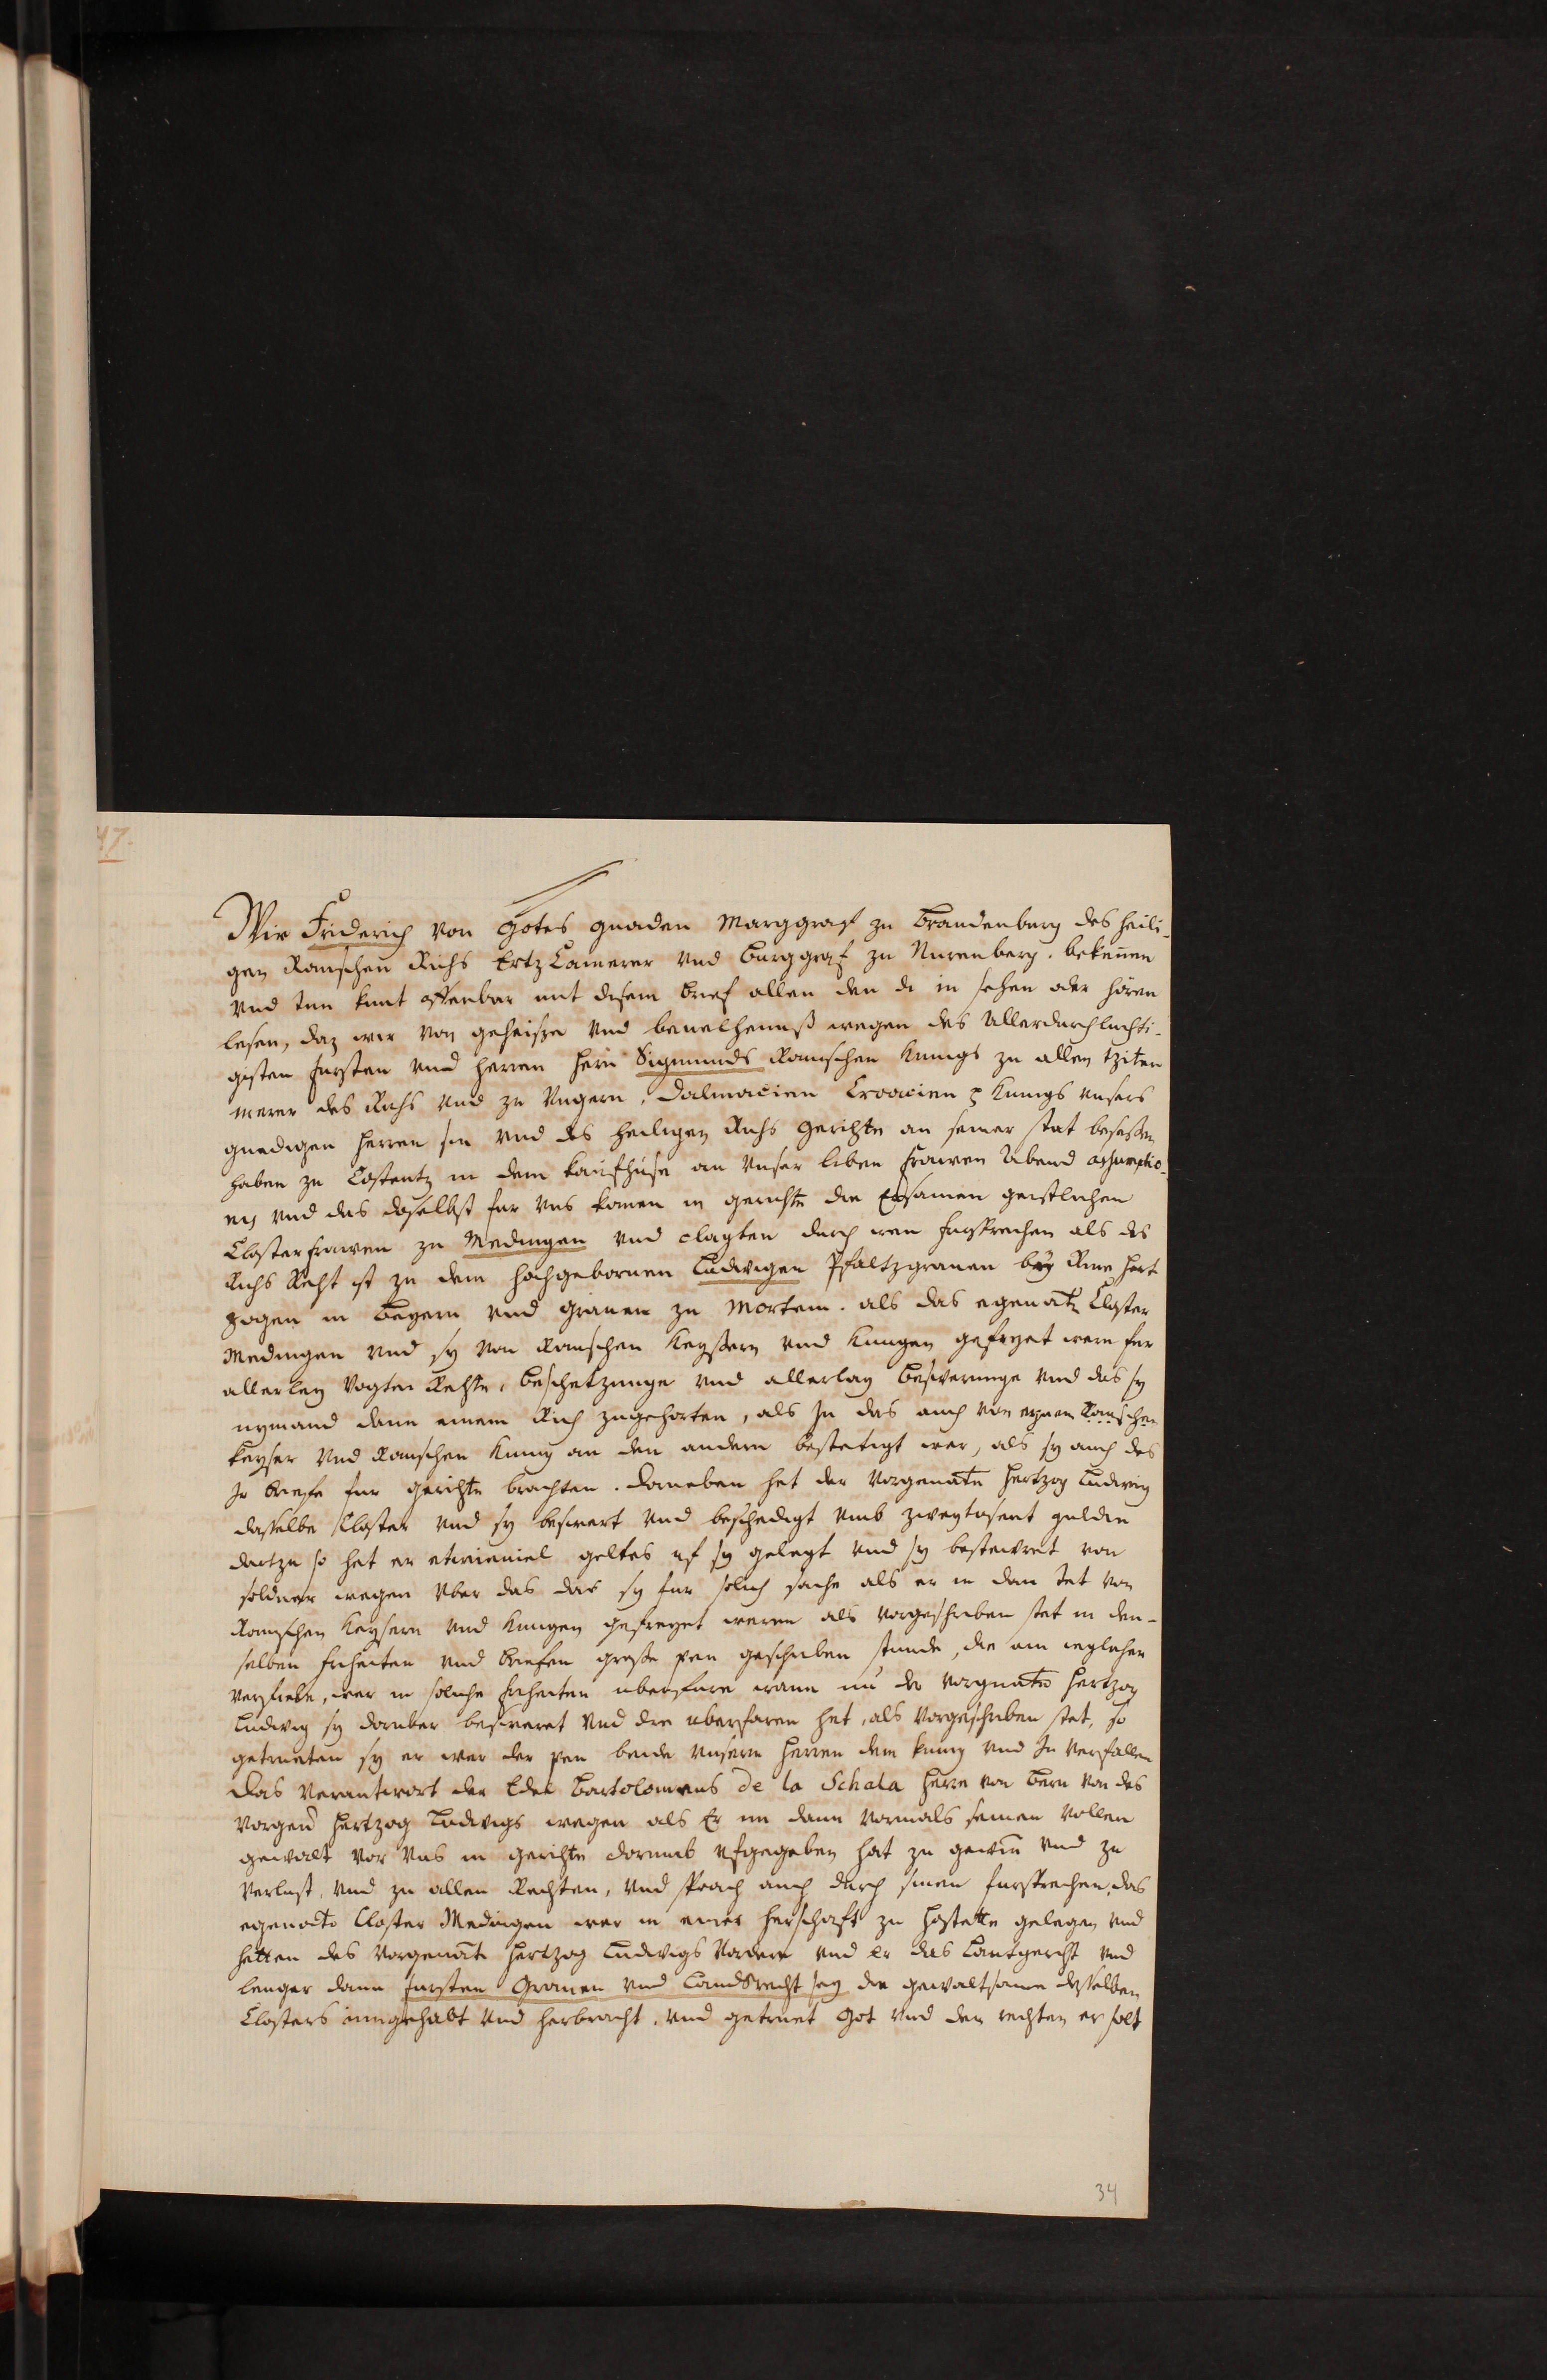 47.
Wir Friderich von Gotes gnaden Marggraf zu Brandenburg des heili-
gen Romschen Richs ErtzCamerer vnd Burggraf zu Nurenberg. bekennen
vnd tun kunt offenbar mit disem brief allen den di in sehen oder hören
lesen, daz wir von geheisse vnd beuelhenuß wegen des Allerdurchluchti-
gisten fursten vnd herren hern Sigmunds Romschen kunigs zu allen tziten
merer des Richs vnd zu Vngern, Dalmacien Croacien ꝛ kunigs vnsers
gnedigen herren sin vnd des heiligen Richs gerichte an seiner stat besessen
haben zu Costentz in dem kaufhuse an vnser liben frawen Abend assumptio-
nis vnd das doselbst fur vns komen in gerichte die Ersamen geistlichen
Closterfrawen zu Medingen vnd clagten durch iren fursprechen als des
Richs Recht ist zu dem hochgebornen Ludwigen Pfaltzgrauen bey Rine hert
zogen in Beyern vnd Grauen zu Mortem. als das egenate Closter
Medingen vnd sy von Romschen keysern vnd kungen gefryet wern fur
allerley Vogten Rechte, beschetzunge vnd allerlay beswerunge vnd das sy
nymand dann einem Rich zugehorten, als In das auch von eynem Romschen
keyser vnd Romschen kunig an den andern bestetigt wer, als sy auch des
Ir briefe fur gerichte brachten. Doneben het der vorgenate hertzog Ludwig
dasselbe Closter vnd sy beswert vnd beschedigt vmb zweytosent gulden
dartzu so het er etwieuiel geltes uf sy gelegt vnd sy bestewret von
soldner wegen vber das das sy fur solich sache als er in dan tet von
Romschen keysern vnd kungen gefreyet weren als vorgeschriben stet in den-
selben friheiten vnd briefen grosse pen geschriben stunde, die ein ieglicher
verfiele, wer in soliche friheiten uberfure wann nu der vorgnate hertzog
Ludwig sy doruber besweret vnd die uberfaren het, als vorgeschriben stet, so
getrueten sy er wer der pen beide vnserm herren dem kunig vnd In verfallen
Das verantwort der Edel Bartolomeus de la Schala herre von Bern von des
vorgen hertzog Ludwigs wegen als Er im dann vormals seinen vollen
gewalt vor vns in gerichte dorumb vfgegeben hat zu gewin vnd zu
verlust, vnd zu allen Rechten, vnd sprach auch durch sinen fursprechen, das
egenate Closter Medingen wer in einer herschaft zu Hostette gelegen vnd
hetten des vorgenate hertzog Ludwigs vordern vnd er das Lantgericht vnd
lenger dann fursten Grauen vnd Landsrecht sey die gewaltsame desselben
Closters inngehabt vnd herbracht, vnd getruet Got vnd dem rechten er solt
34